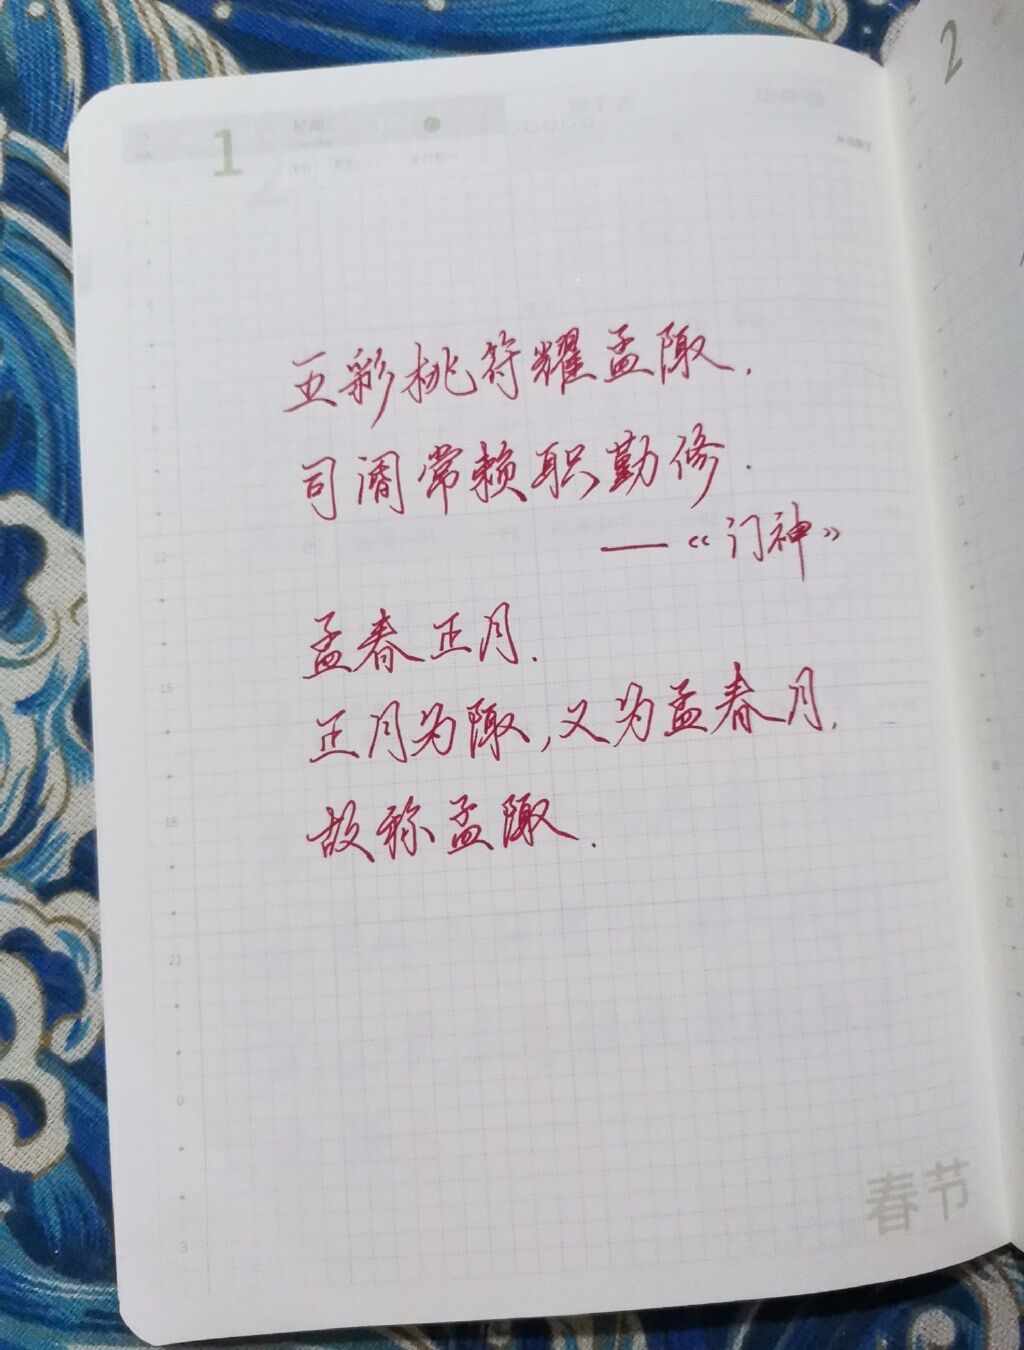 1
2
五彩桃符耀孟陬.
司阍常赖职勤修.
——《门神》
孟春正月.
正月为陬,又为孟春月.
故称孟陬.
6
9
12
15
18
21
0
3
春节